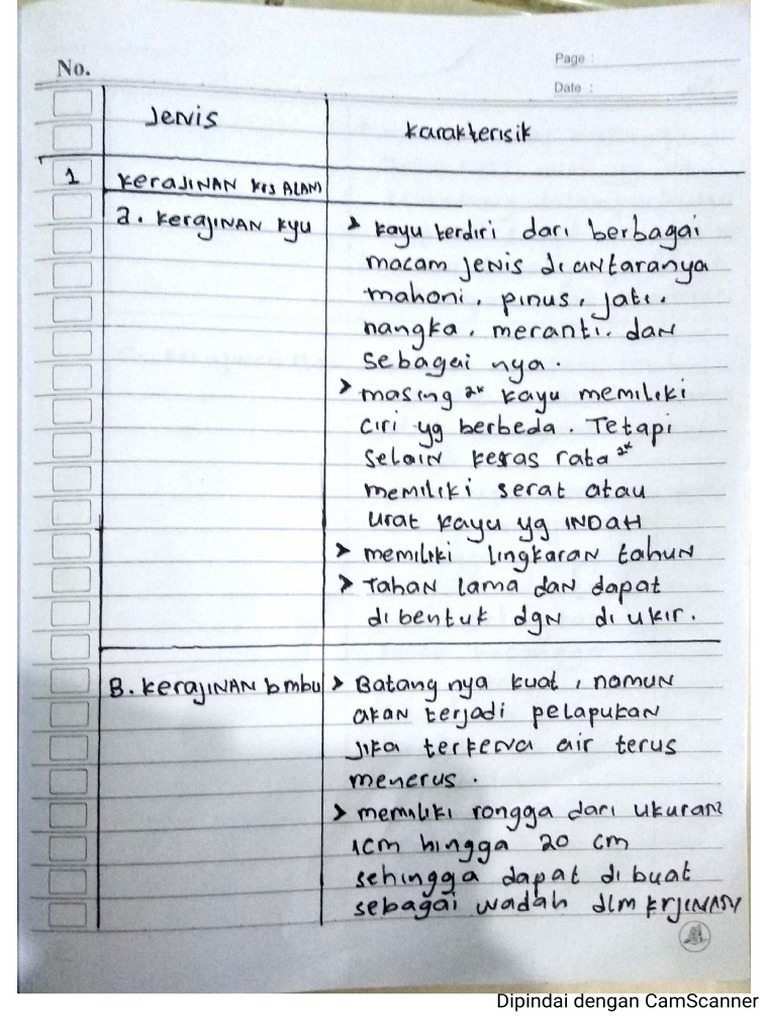 No.
Page :
Date :
Jenis
Karakterisik
1 Kerajinan krs ALAM
a. Kerajinan kyu
> Kayu terdiri dari berbagai
macam Jenis diantaranya
mahoni, pinus, jati,
nangka, meranti. dan
sebagai nya.
> masing 2x kayu memiliki
ciri yg berbeda. Tetapi
Selain keras rata 2x
memiliki serat atau
urat kayu yg INDAH
> memiliki lingkaran tahun
> Tahan lama dan dapat
dibentuk dgn di ukir.
B. Kerajinan bmbu
> Batang nya kuat, namun
akan terjadi pelapukan
jika terkena air terus
menerus.
> memiliki rongga dari ukuran
1cm hingga 20 cm
sehingga dapat dibuat
sebagai wadah dlm krjinan
Dipindai dengan CamScanner